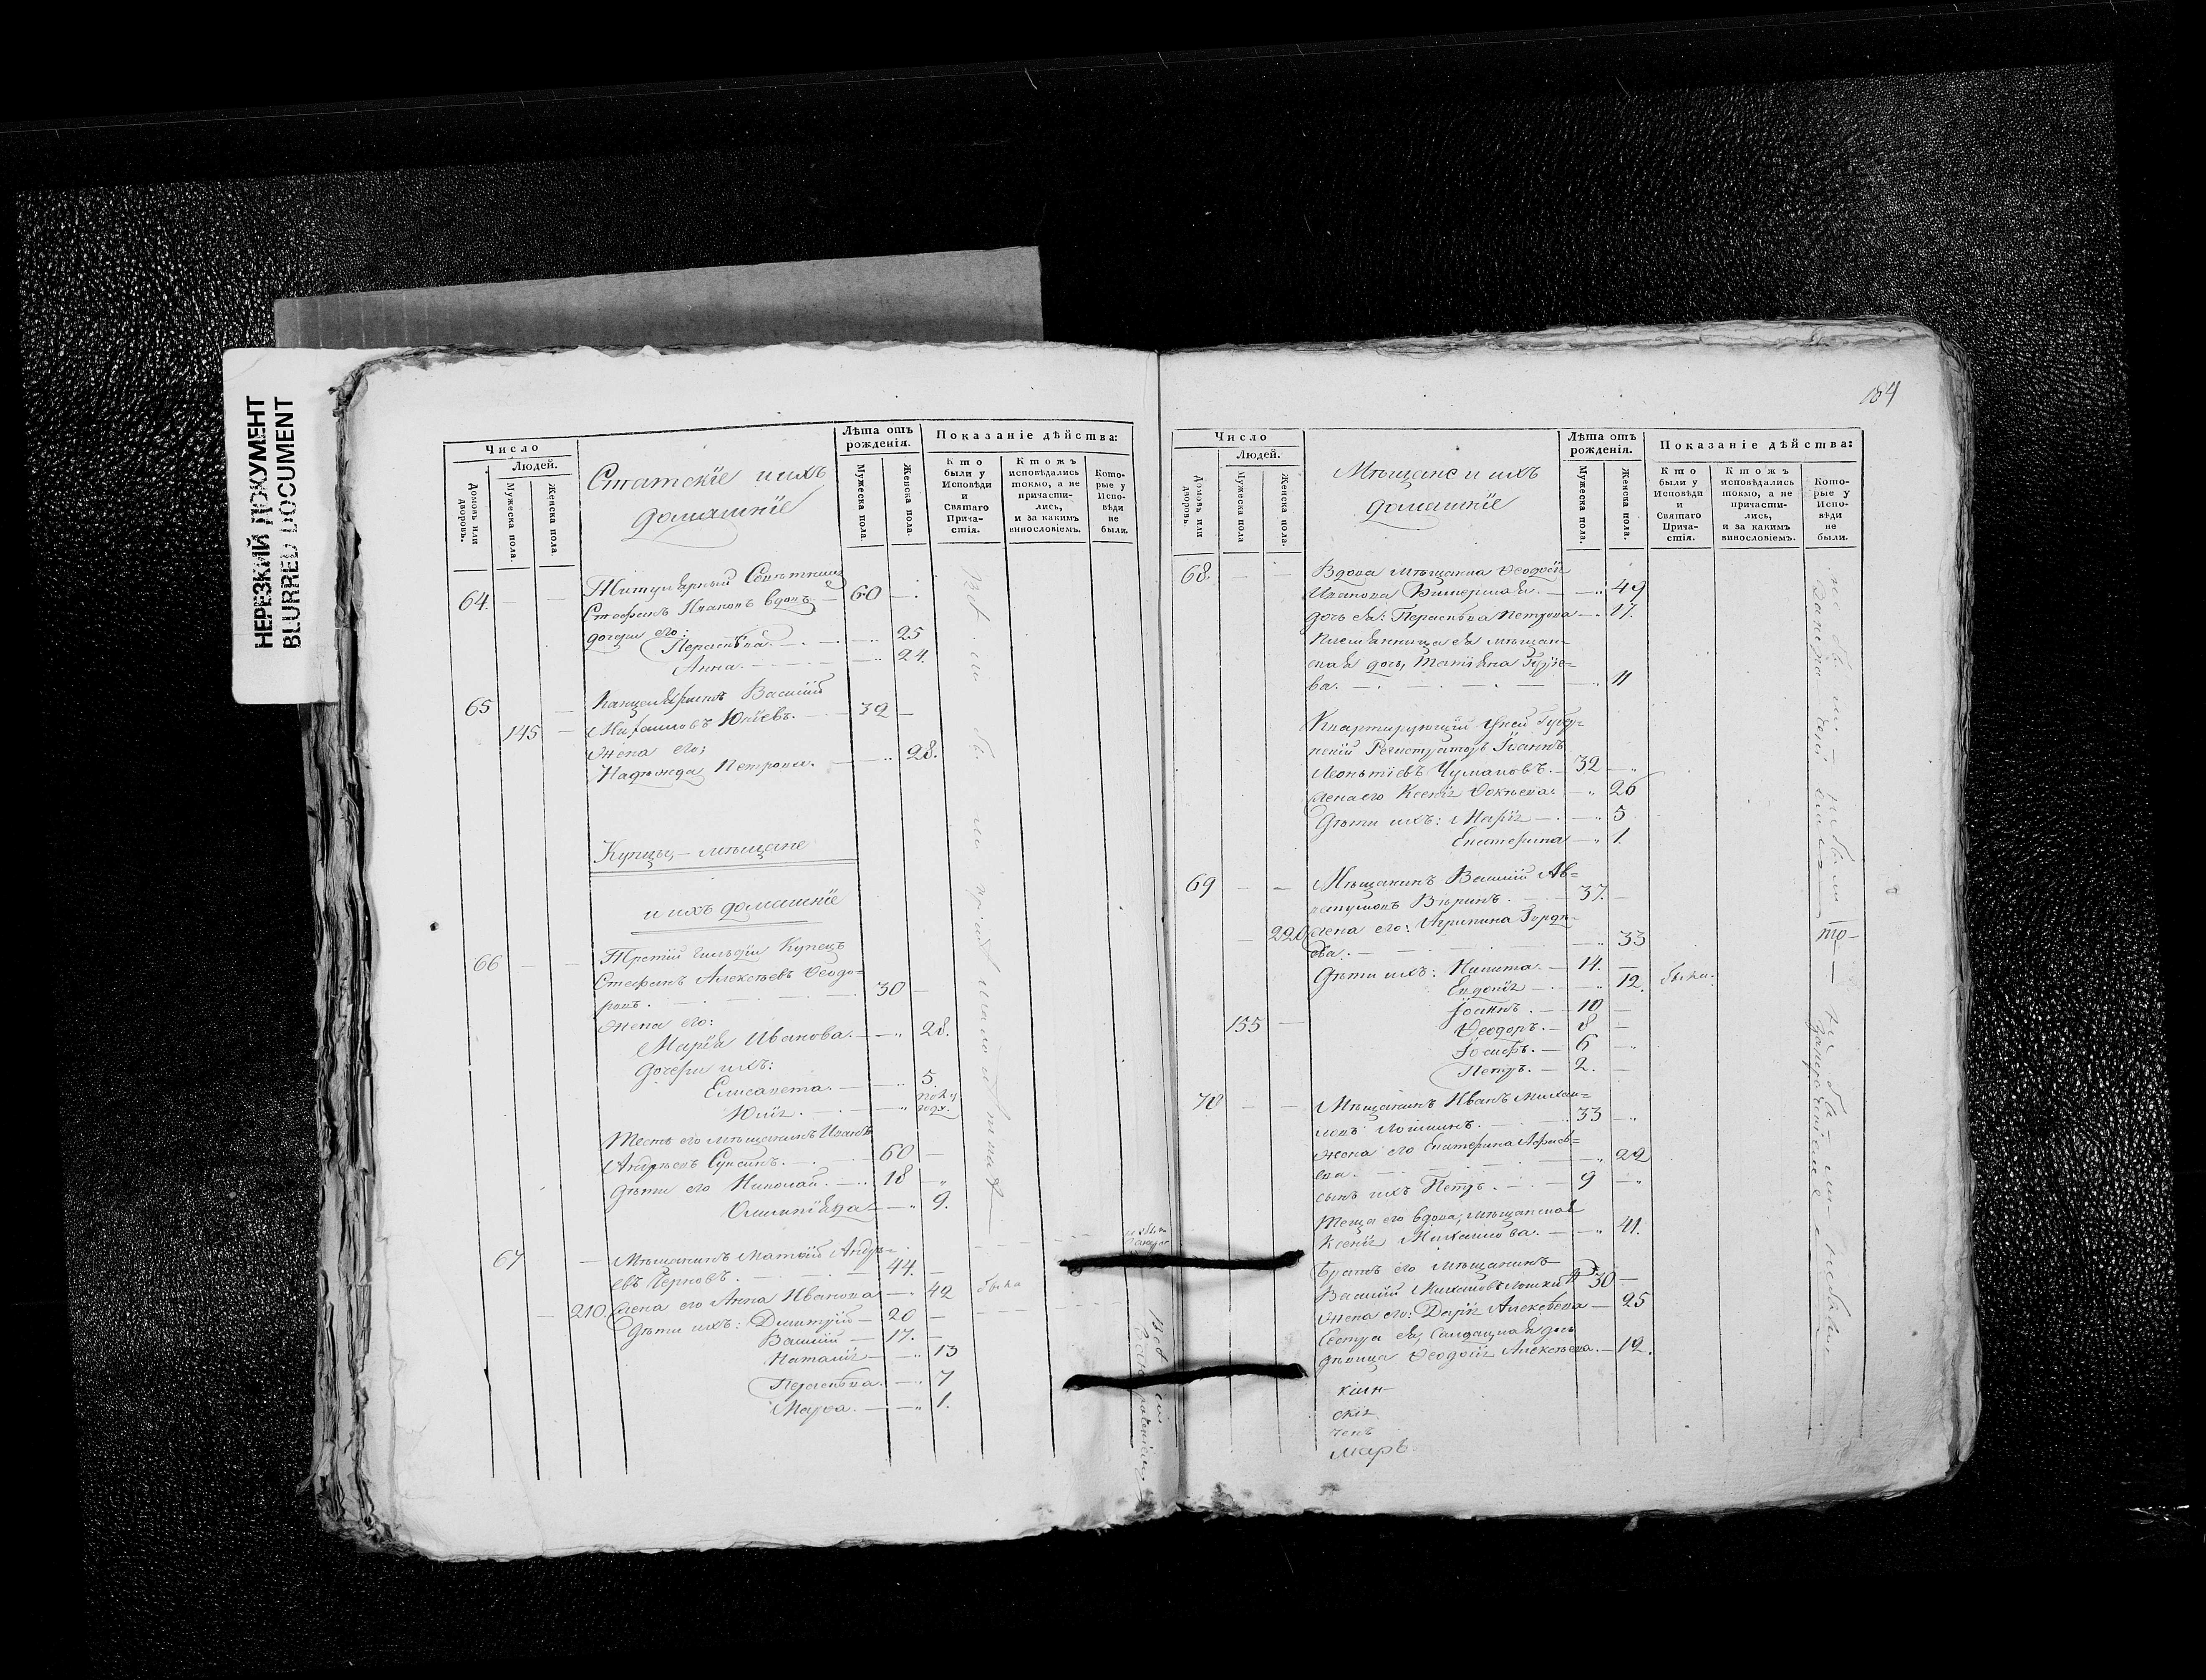 НЕРЕЗКИЙ ДОКУМЕНТ
BLURRED DOCUMENT
Число
Людей.
Домовъ или дворовъ.
Мужеска пола.
Женска пола.
Статскіе и ихъ
домашніе
Лѣта отъ рожденія.
Мужеска пола.
Женска пола.
Показаніе дѣйства:
Кто были у Исповѣди и Святаго Прича-стія.
Ктожъ исповѣдались токмо, а не причасти-лись, и за какимъ винословіемъ.
Кото-рые у Испо-вѣди не были.
64. Титулярный Совѣтникъ
Стефанъ Ивановъ вдовъ 60
дочери его:
Параскѣва 25
Анна 24.
65 Канцеляристъ Василій
145 Михаиловъ Юнѣевъ. 32
Жена его;
Надежда Петрова. 28.
Купцы, мѣщане
и ихъ домашніе
66 Третій гильдіи Купецъ
Стефанъ Алексѣевъ Ѳеодо=
ровъ. 30
Жена его:
Марія Иванова. 28.
дочери ихъ:
Елисавета. 5.
Юлія. полу года.
Тесть его мѣщанинъ Иванъ
Андреевъ 60
дѣти его Николай. 18
Олимпіяда 9.
67 Мѣщанинъ Матѳій Андре=
евъ Черновъ. 44.
210. Жена его Анна Иванова 42 была
дѣти ихъ: Димитрій 20
Василій 17.
Наталія 13
Параскѣва. 7
Марѳа. 1.
184
Число
Людей.
Домовъ или дворовъ.
Мужеска пола
Женска пола.
Мѣщане и ихъ
домашніе
Лѣта отъ рожденія.
Мужеска пола.
Женска пола.
Показаніе дѣйства:
Кто были у Исповѣди и Святаго Прича-стія.
Ктожъ исповѣдались токмо, а не причасти-лись, и за какимъ винословіемъ.
Кото-рые у Испо-вѣди не были.
68. Вдова мѣщанка Ѳеодосія
Иванова 49
дочь ея: Параскѣва Петрова 17.
Племянница ея мѣщан=
ская дочь, Татіяна
ва. 11
Квартирующій у ней Губер=
нскій Регистраторъ Іоаннъ
Леонтіевъ Чумаковъ. 32
Жена его Ксенія 26
Дѣти ихъ: Марія 5
Екатерина 1.
69 Мѣщанинъ Василій Ав=
вакумовъ 37.
220 Жена его: Агрипина Гордѣ=
ева. 33
Дѣти ихъ: Никита. 14.
Евдокія 12. была.
Іоаннъ. 10
155 Ѳеодоръ. 8
Іосифъ. 6
Петръ. 2.
70 Мѣщанинъ Иванъ Михаи=
ловъ 33
Жена его Екатерина
ева. 22
сынъ ихъ Петръ. 9
Теща его вдова; мѣщанская
Ксенія Михаилова. 41.
Братъ его мѣщанинъ
Василій Михаиловъ 30
Жена его: Дарія Алексѣева 25
Сестра ея, Салдацкая дочь
дѣвица Ѳеодосія Алексѣева. 12.